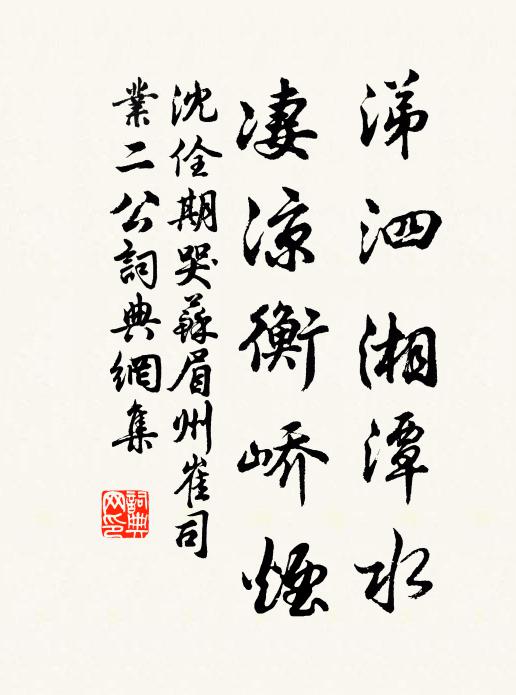 涕泗湘潭水
凄涼衡嶠煙
沈佺期哭蘇眉州崔司
業二公詞典網集
詞典网印